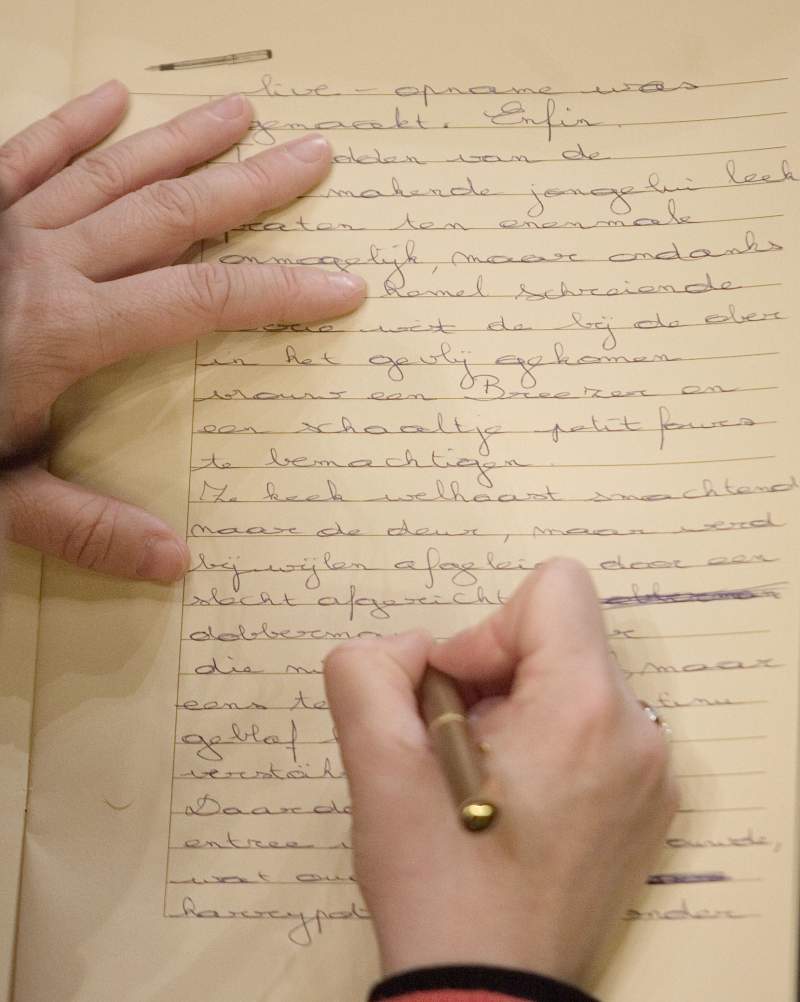 live-opname was
gemaeekt. Enfin.
dden van de
makende jongelui leek
praten ten enenmale
onmogelijk, maar ondanks
hemel schreiende
wist de bij de ober
in het gevlij gekomen
vrouw een Breezer en
een schaaltje petit fours
te bemachtigen.
Ze keek welhaast smachtend
naar de deur, maar werd
bijwijlen afgeleid door een
slecht afgericht
dobberma
die ni , maar
eens te tinu
geblaf
verstäk
Daar
entree ouwde,
wat
harrypot onder